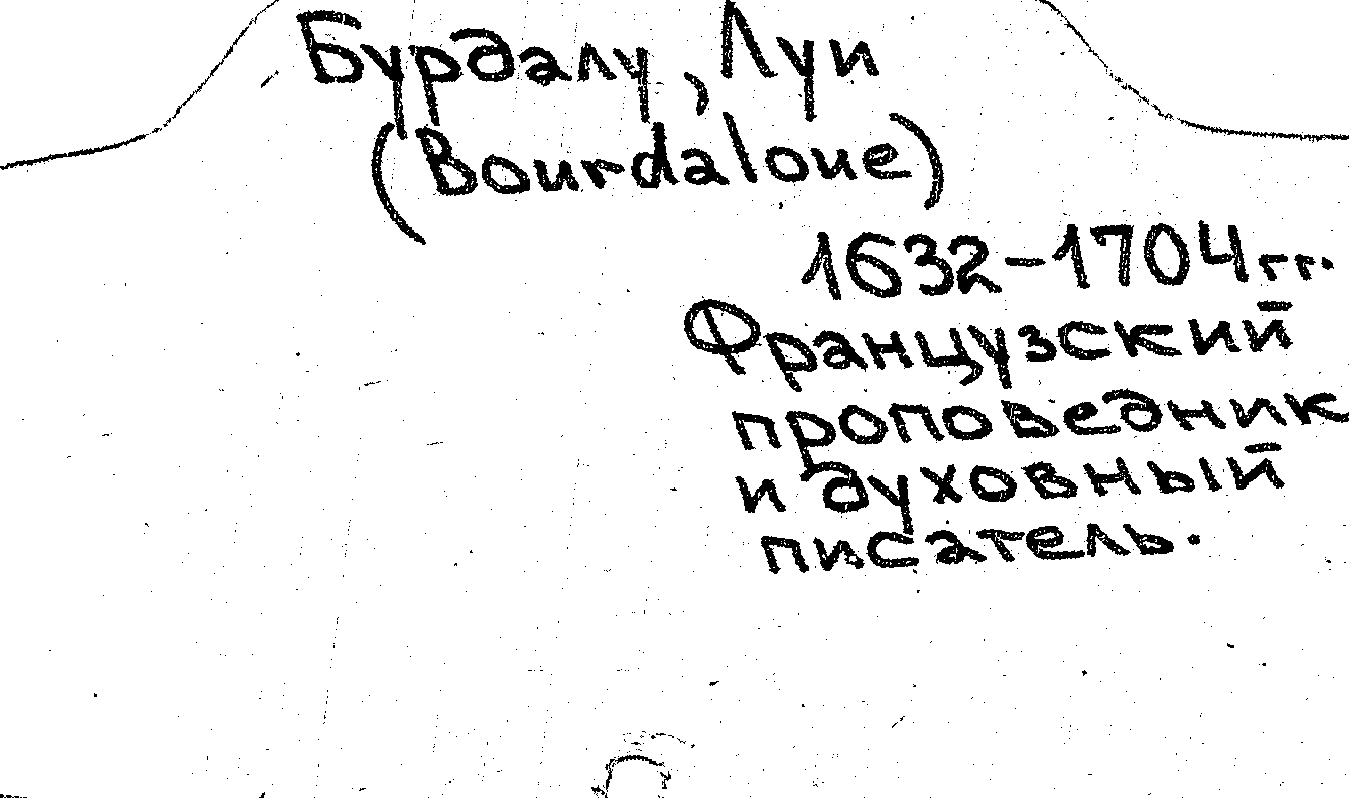 Бурдалу, Луи
(Bourdaloue)
1632-1704гг.
Французский
проповедник
и духовный
писатель.